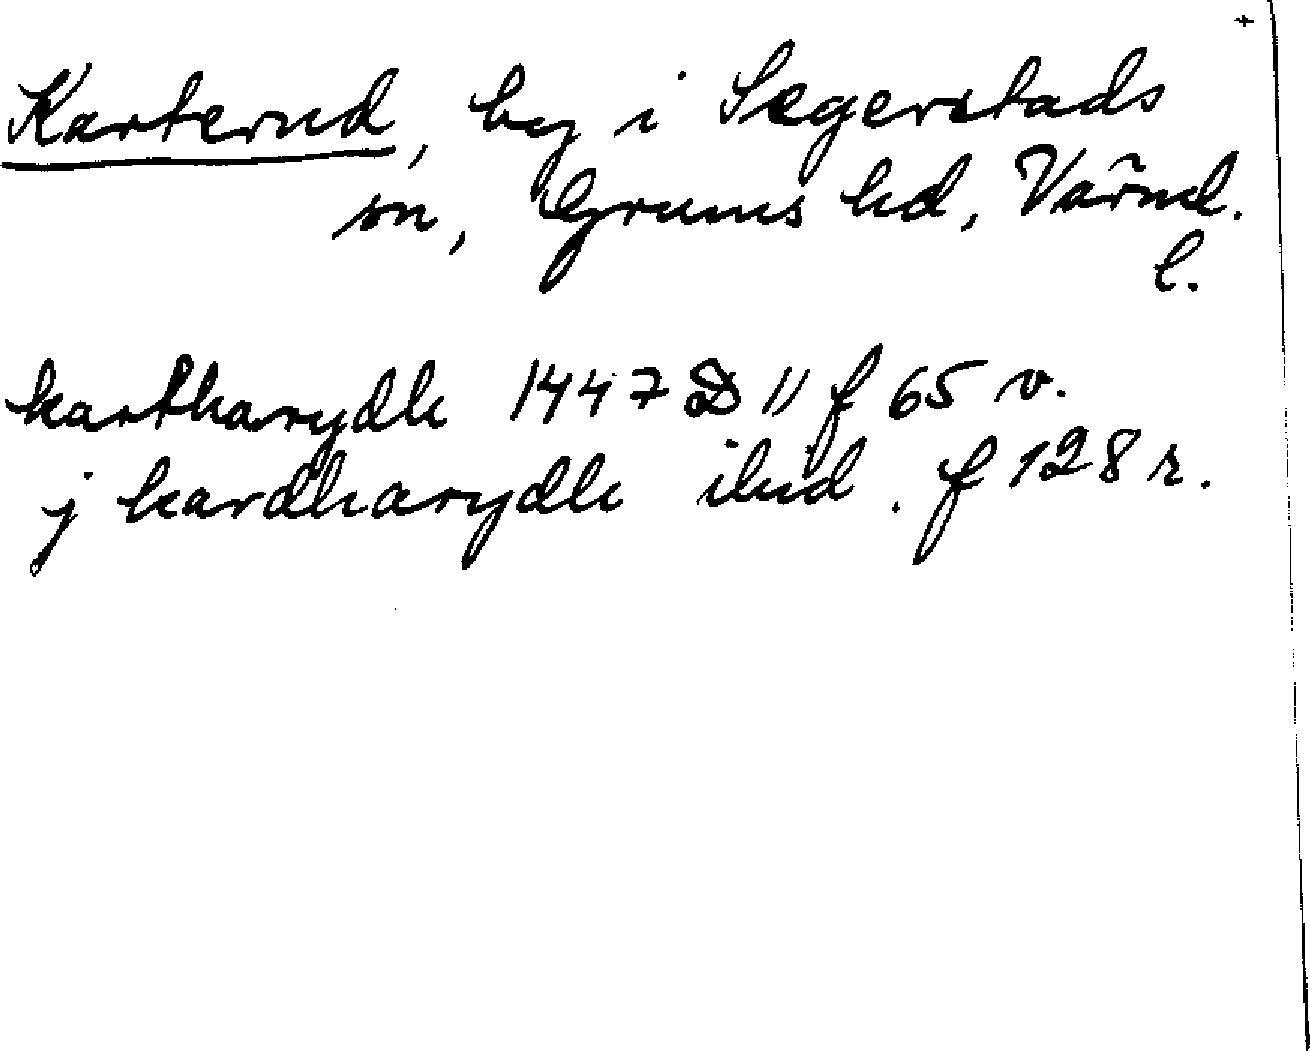 +
Karterud, by i Segerstads
sn, Grums hd, Värml.
l.
kartharydh 1447 D 11 f 65 v.
j kardharydh ibid. f 128 r.